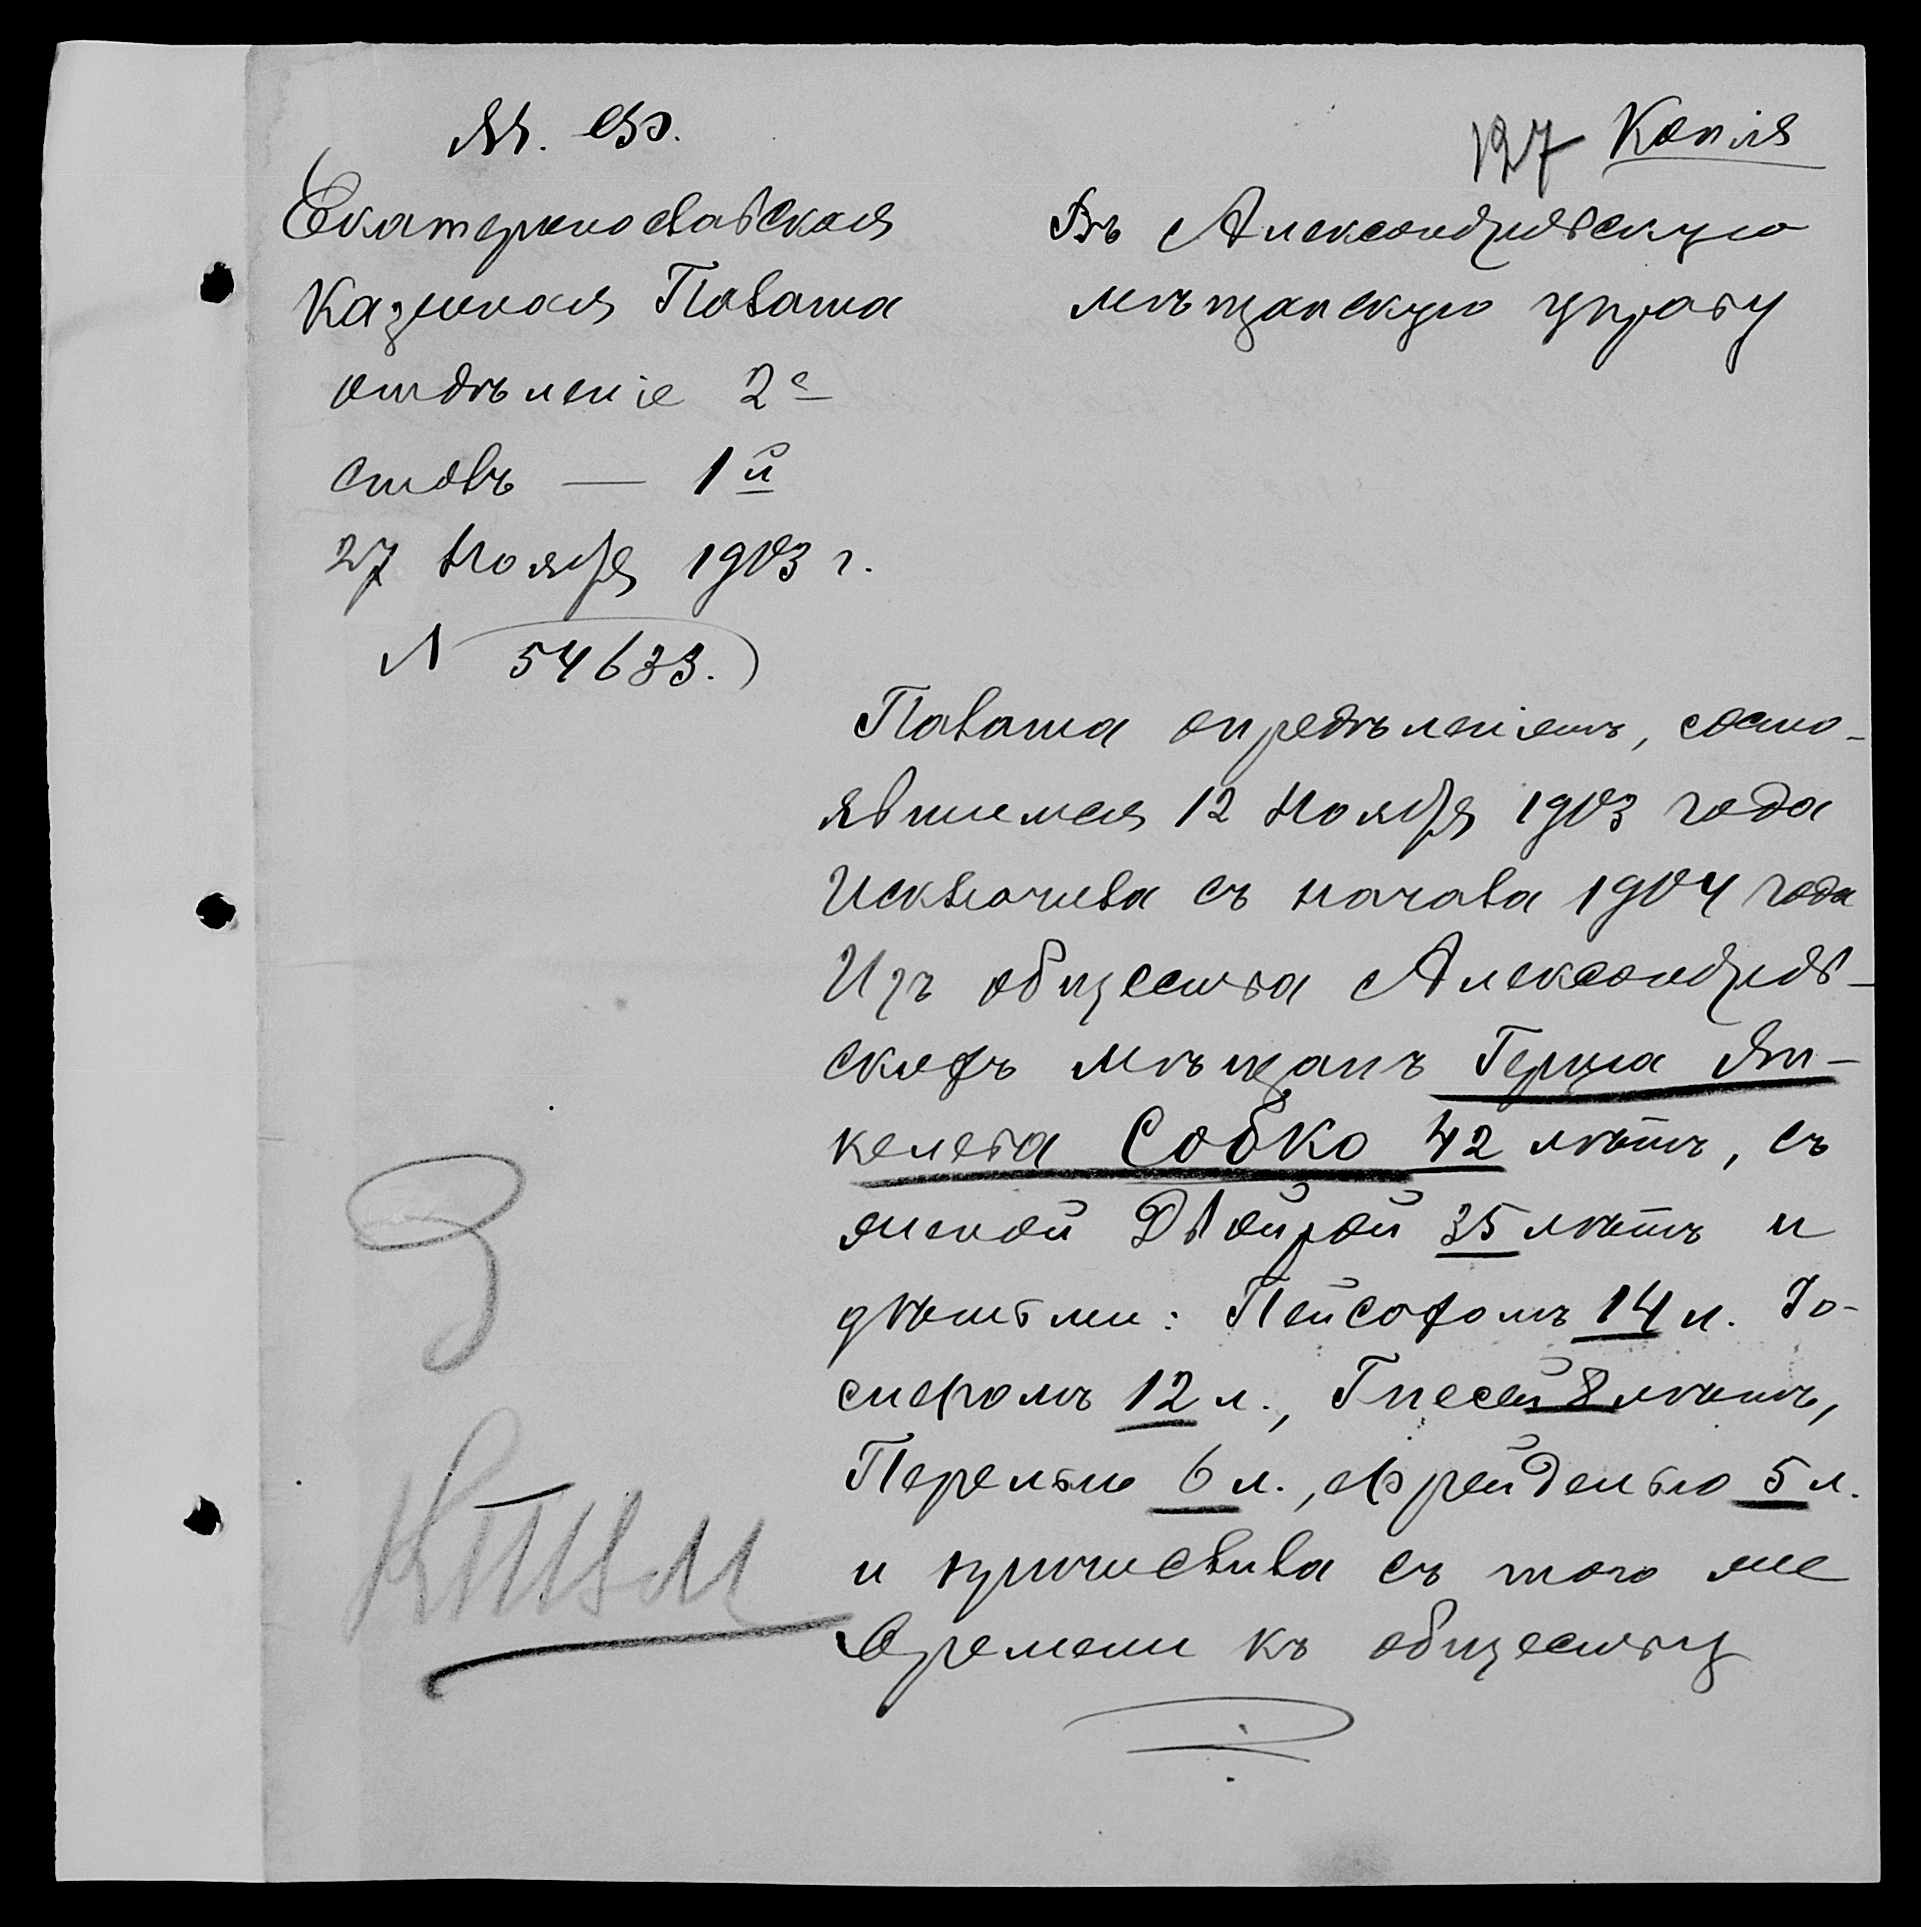 М. Ф.
127 Копія
Екатеринославская
Казенная Палата
отдѣленіе 2е
столъ — 1й
27 Ноября 1903 г.
N 54633.
Въ Александровскую
мѣщанскую управу
Палата опредѣленіемъ, состо-
явшемся 12 Ноября 1903 года
Исключила съ начала 1904 года
Изъ общества Александров-
скихъ мѣщанъ Герша Ян-
келева Собко 42 лѣтъ, съ
женой Двойрой 35 лѣтъ и
дѣтьми: Пейсахомъ 14 л. Іо-
сифомъ 12 л., Гнесей 8 лѣтъ,
Перелью 6 л., Фрейделью 5 л.
и причислила съ того же
времени къ обществу